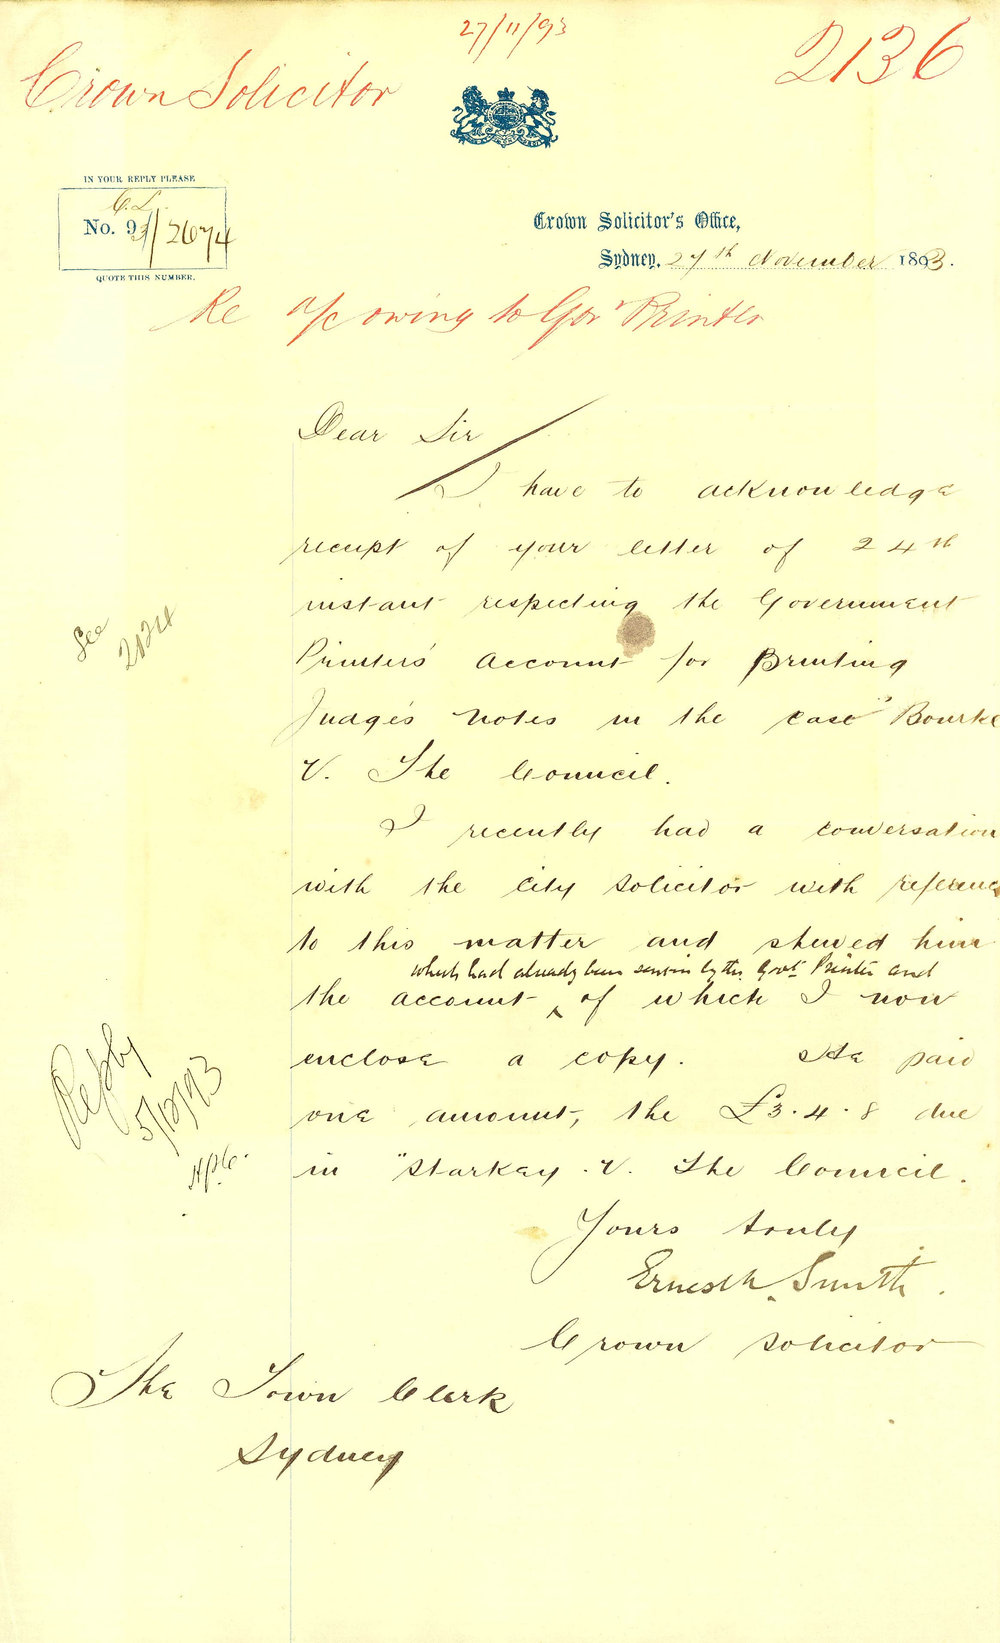 27/11/93
2136
Crown Solicitor
IN YOUR REPLY PLEASE
C.S.
No. 93/2674
QUOTE THIS NUMBER.
Crown Solicitor's Office,
Sydney, 27th November 1893.
Re a/c owing to Govr Printer
Dear Sir
I have to acknowledge
receipt of your letter of 24th
instant respecting the Government
Printers' account for Printing
Judge's notes in the case "Bourke
V. The Council.
I recently had a conversation
with the City Solicitor with reference
to this matter and shewed him
which had already been sent in by the Govt Printer and
the account of which I now
enclose a copy. He paid
one amount, the £3.4.8 due
in "Starkey. V. The Council.
Yours truly
Ernest Smith.
Crown Solicitor
The Town Clerk
Sydney
See
2124
Reply
5/12/93